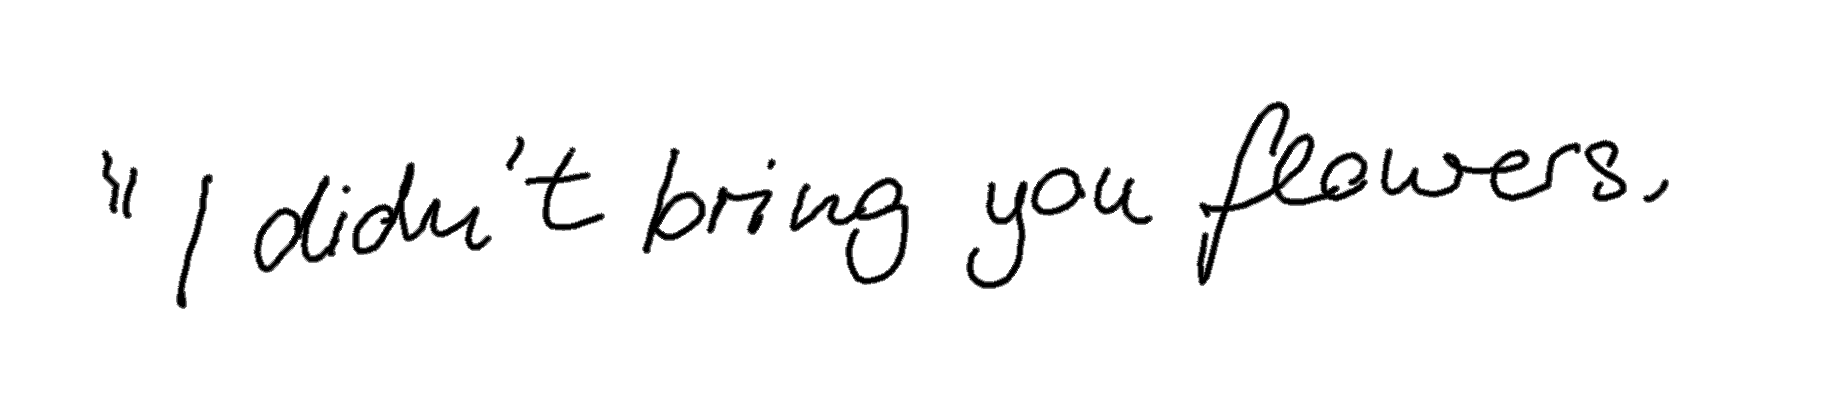 "I didn't bring you flowers,